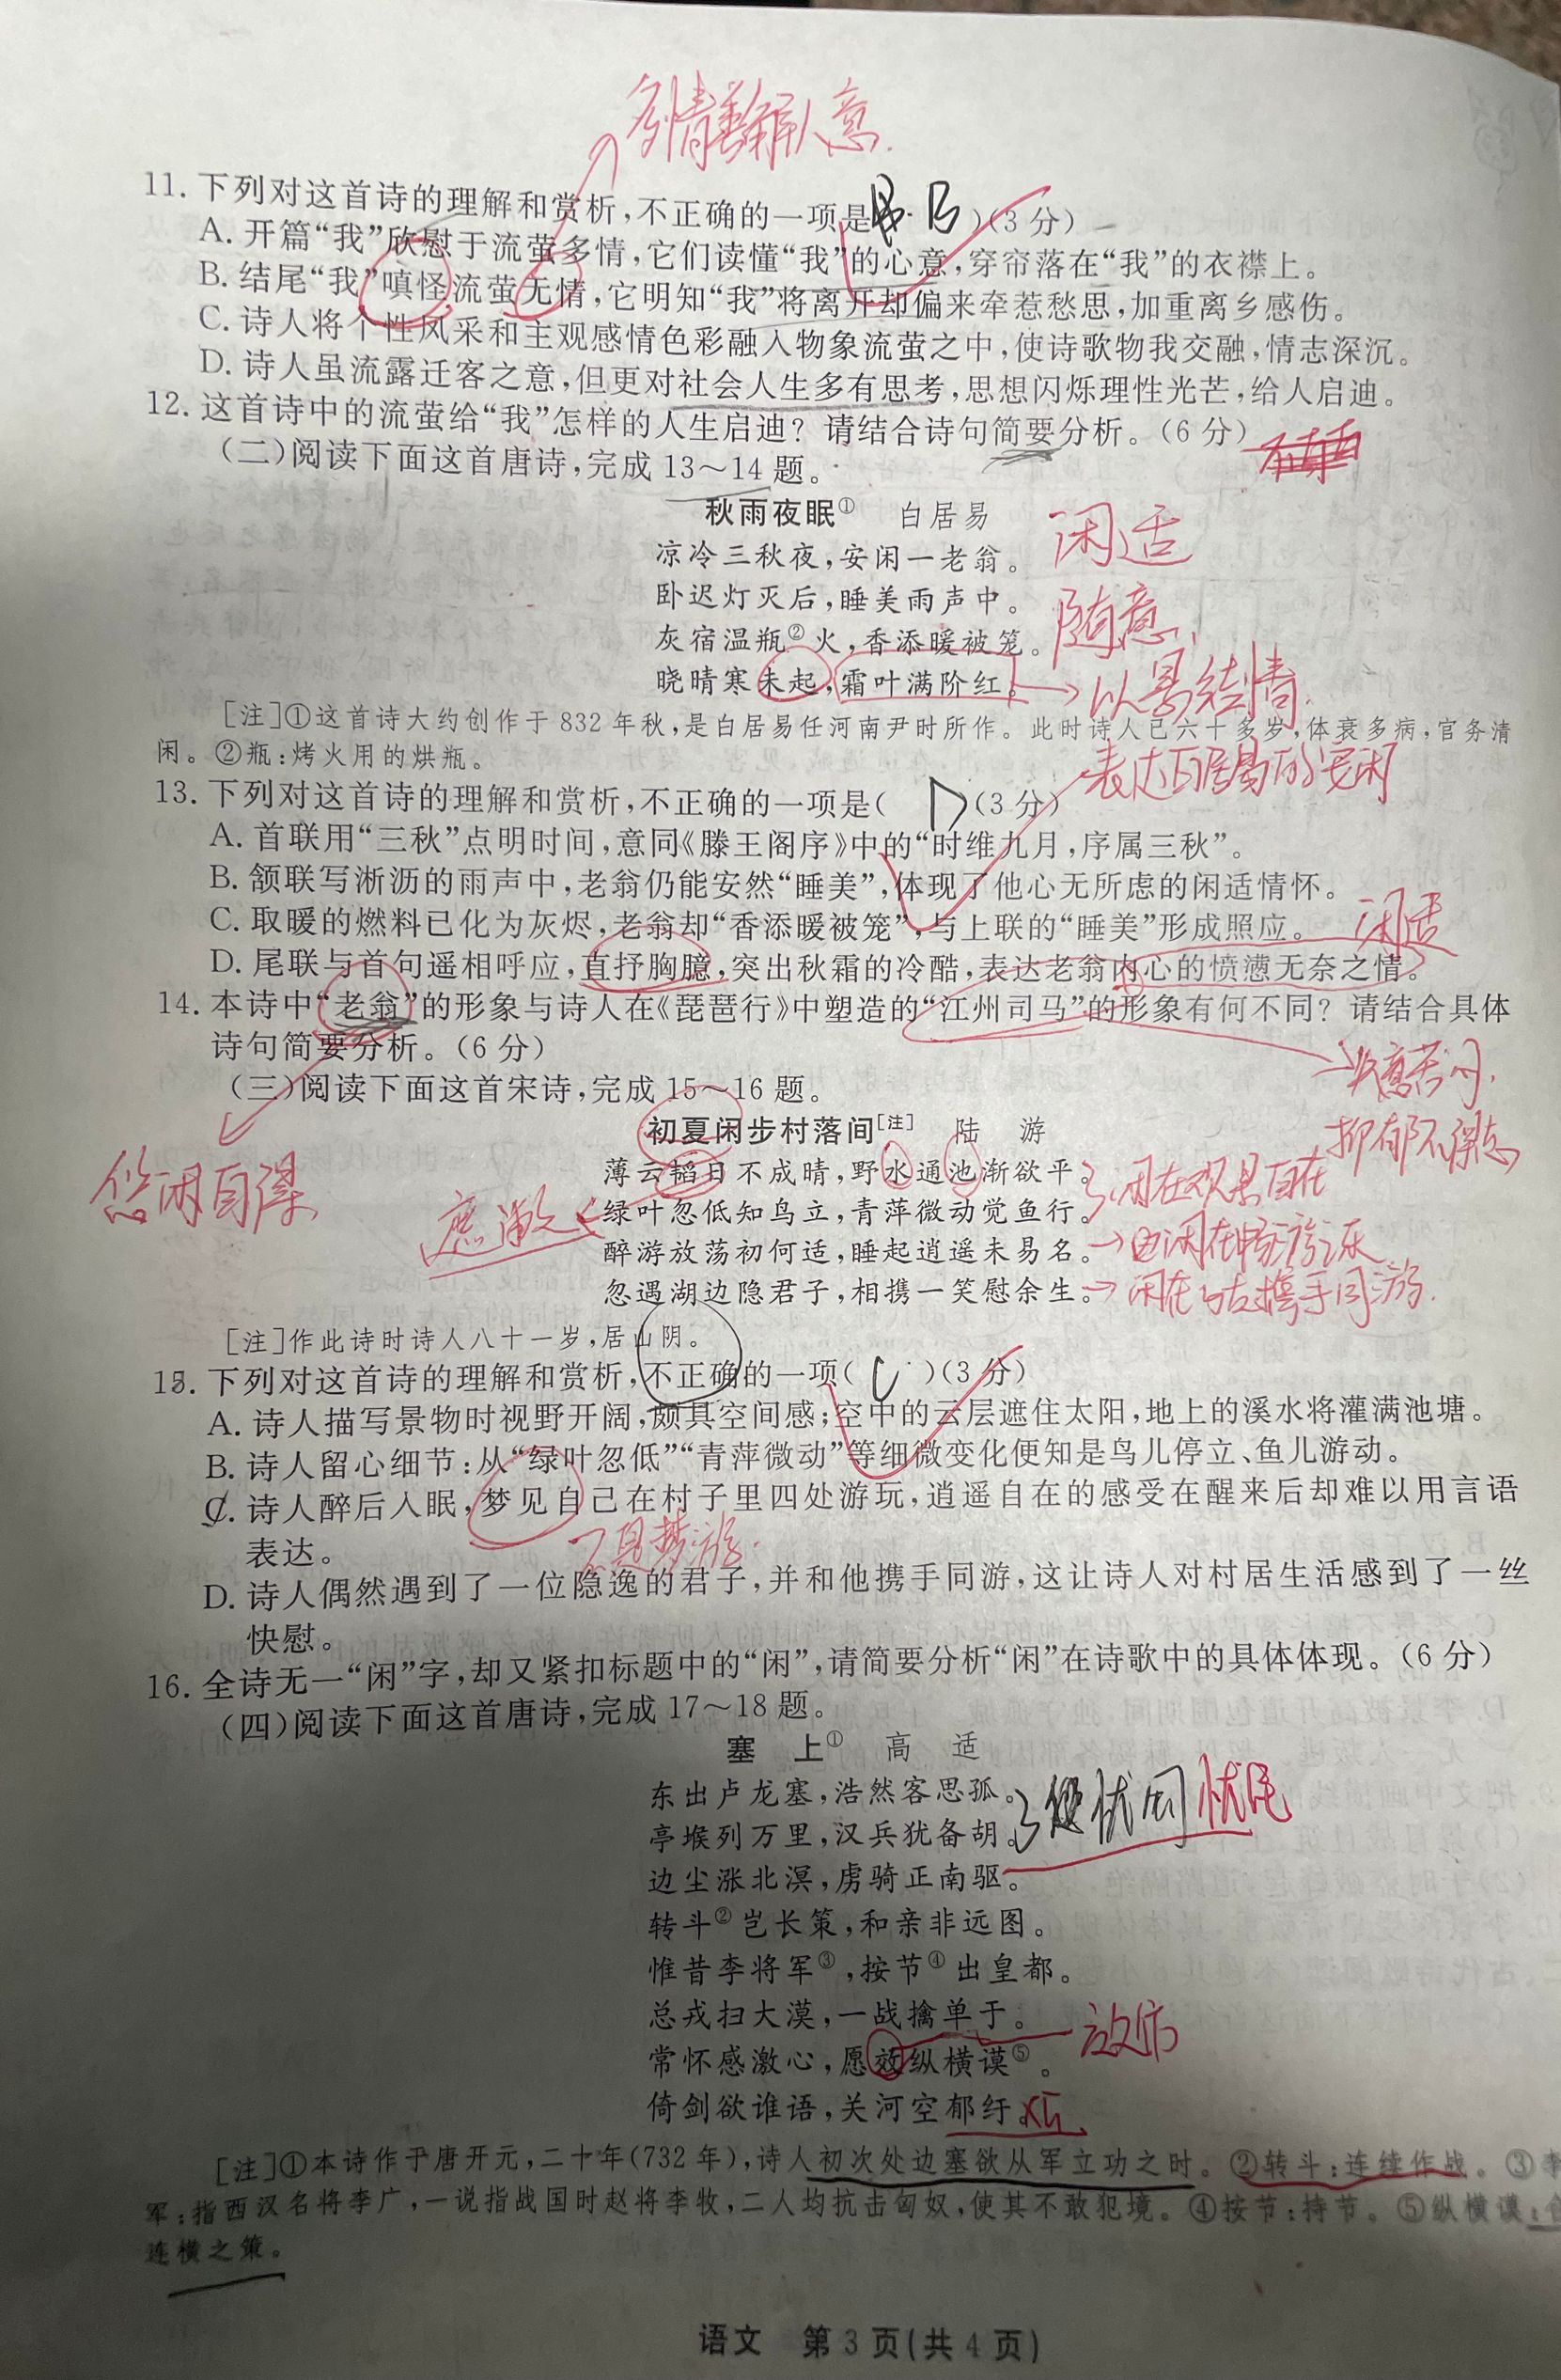 多情善解人意.
11. 下列对这首诗的理解和赏析,不正确的一项是 B )(3 分)
A. 开篇“我”欣慰于流萤多情,它们读懂“我”的心意,穿帘落在“我”的衣襟上。
B. 结尾“我”嗔怪流萤无情,它明知“我”将离开却偏来牵惹愁思,加重离乡感伤。
C. 诗人将个性风采和主观感情色彩融入物象流萤之中,使诗歌物我交融,情志深沉。
D. 诗人虽流露迁客之意,但更对社会人生多有思考,思想闪烁理性光芒,给人启迪。
12. 这首诗中的流萤给“我”怎样的人生启迪? 请结合诗句简要分析。(6 分)
(二)阅读下面这首唐诗,完成 13～14 题。
秋雨夜眠① 白居易
凉冷三秋夜,安闲一老翁。 闲适
卧迟灯灭后,睡美雨声中。
灰宿温瓶②火,香添暖被笼。 随意
晓晴寒未起,霜叶满阶红。 以景结情.
[注]①这首诗大约创作于 832 年秋,是白居易任河南尹时所作。此时诗人已六十多岁,体衰多病,官务清
闲。②瓶:烤火用的烘瓶。
表达白居易的安闲
13. 下列对这首诗的理解和赏析,不正确的一项是( D )(3 分)
A. 首联用“三秋”点明时间,意同《滕王阁序》中的“时维九月,序属三秋”。
B. 颔联写淅沥的雨声中,老翁仍能安然“睡美”,体现了他心无所虑的闲适情怀。
C. 取暖的燃料已化为灰烬,老翁却“香添暖被笼”,与上联的“睡美”形成照应。
闲适
D. 尾联与首句遥相呼应,直抒胸臆,突出秋霜的冷酷,表达老翁内心的愤懑无奈之情。
14. 本诗中“老翁”的形象与诗人在《琵琶行》中塑造的“江州司马”的形象有何不同? 请结合具体
诗句简要分析。(6 分)
失意苦闷.
抑郁不得志
悠闲自得
(三)阅读下面这首宋诗,完成 15～16 题。
初夏闲步村落间[注] 陆 游
薄云韬日不成晴,野水通池渐欲平。 闲在观景自在
遮蔽
绿叶忽低知鸟立,青萍微动觉鱼行。
醉游放荡初何适,睡起逍遥未易名。
忽遇湖边隐君子,相携一笑慰余生。 闲在与友携手同游.
[注]作此诗时诗人八十一岁,居山阴。
15. 下列对这首诗的理解和赏析,不正确的一项( C )(3 分)
A. 诗人描写景物时视野开阔,颇具空间感;空中的云层遮住太阳,地上的溪水将灌满池塘。
B. 诗人留心细节:从“绿叶忽低”“青萍微动”等细微变化便知是鸟儿停立、鱼儿游动。
C. 诗人醉后入眠,梦见自己在村子里四处游玩,逍遥自在的感受在醒来后却难以用言语
表达。
不是梦游.
D. 诗人偶然遇到了一位隐逸的君子,并和他携手同游,这让诗人对村居生活感到了一丝
快慰。
16. 全诗无一“闲”字,却又紧扣标题中的“闲”,请简要分析“闲”在诗歌中的具体体现。(6 分)
(四)阅读下面这首唐诗,完成 17～18 题。
塞 上① 高 适
东出卢龙塞,浩然客思孤。
亭堠列万里,汉兵犹备胡。 忧国 忧民
边尘涨北溟,虏骑正南驱。
转斗②岂长策,和亲非远图。
惟昔李将军③,按节④出皇都。
总戎扫大漠,一战擒单于。
常怀感激心,愿效纵横谟⑤。 效仿
倚剑欲谁语,关河空郁纡
[注]①本诗作于唐开元,二十年(732 年),诗人初次处边塞欲从军立功之时。②转斗:连续作战。③李
军:指西汉名将李广,一说指战国时赵将李牧,二人均抗击匈奴,使其不敢犯境。④按节:持节。⑤纵横谟:合
连横之策。
语文 第 3 页(共 4 页)